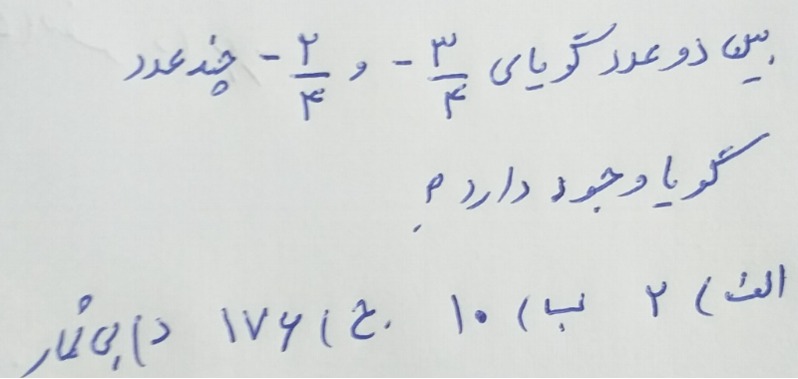 بین دو عدد گویای ۳/۴ - و ۲/۴ - چند عدد
گویا وجود دارد؟
الف) ۲ ب) ۱۰ ج) ۱۷۶ د) بی شمار